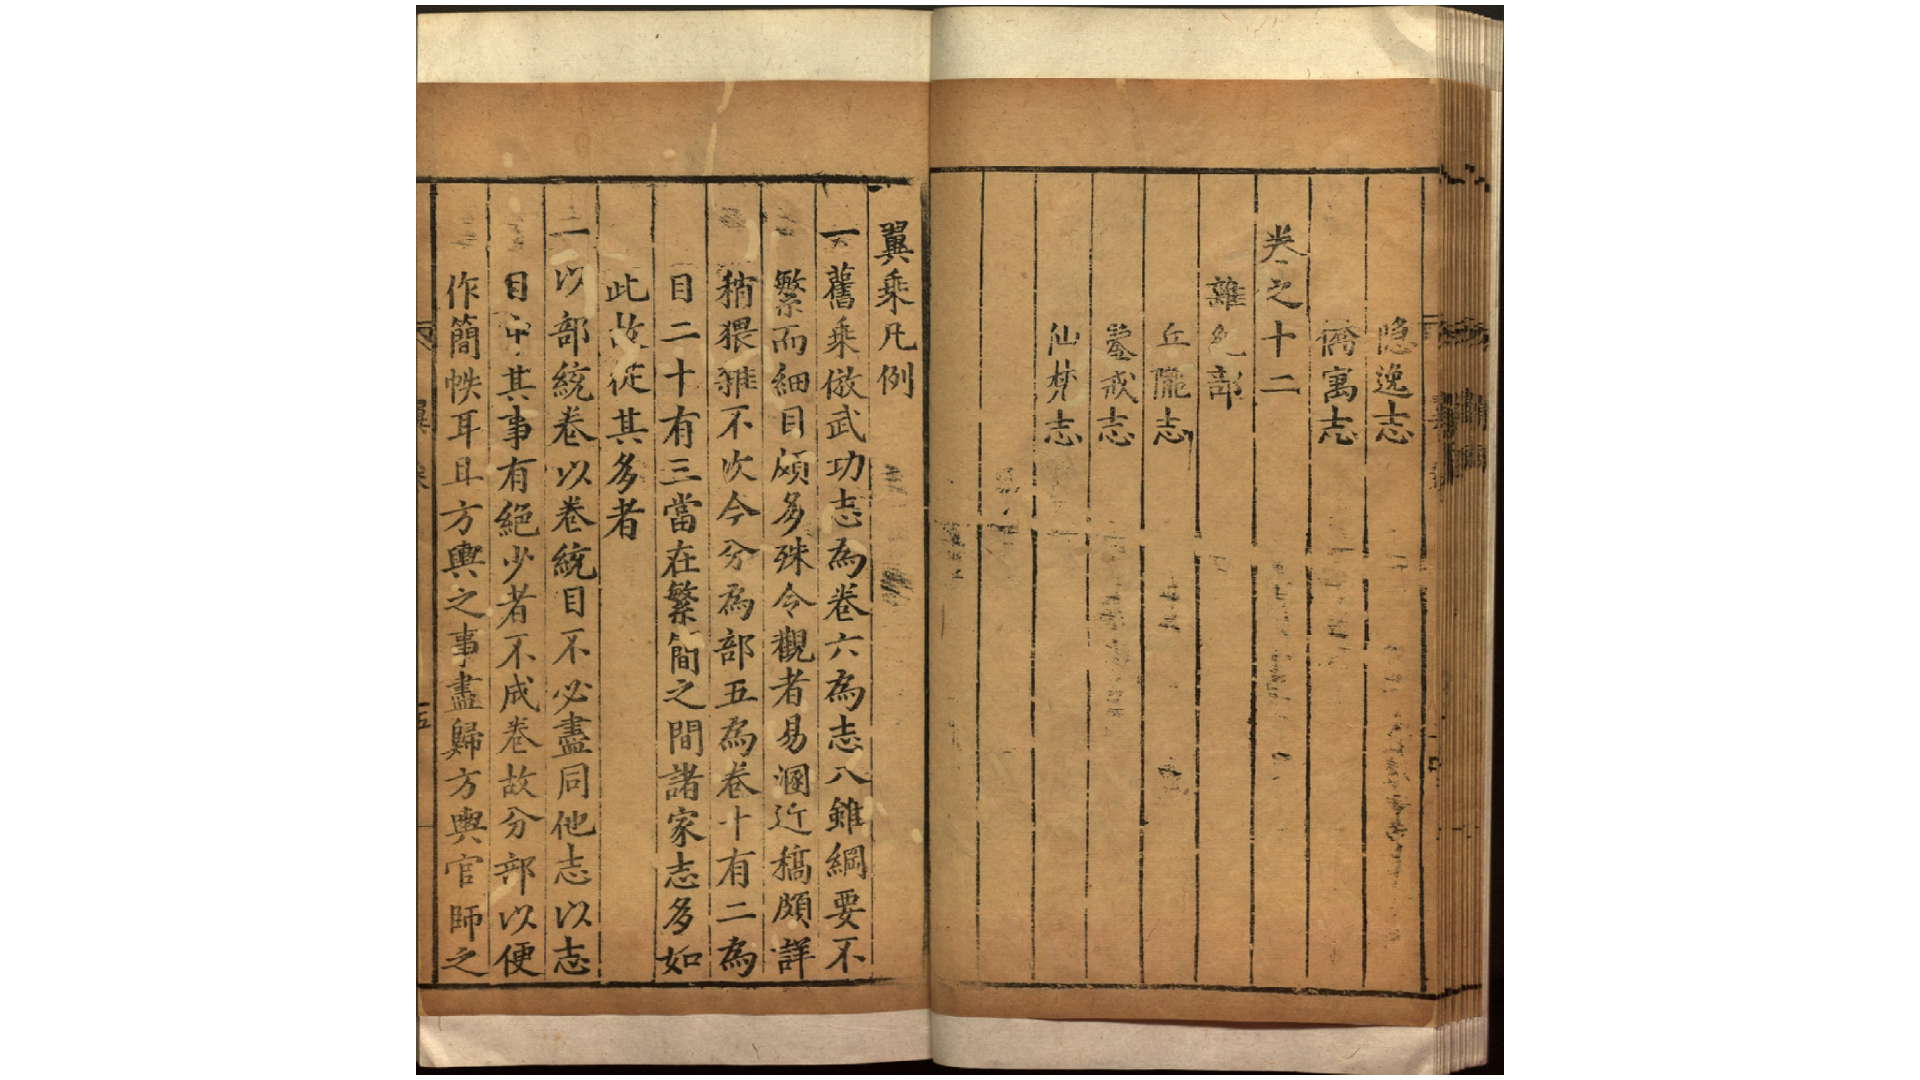 隐逸志
僑寓志
卷之十二
雜紀部
丘隴志
鑒戒志
仙梵志
翼乘凡例
一舊乘倣武功志為卷六為志八雖綱要不
繁而細目頗多殊令觀者易溷近稿頗詳
稍猥雜不次今分為部五為卷十有二為
目二十有三當在繁簡之間諸家志多如
此故從其多者
一以部統卷以卷統目不必盡同他志以志
目中其事有絕少者不成卷故分部以便
作簡帙耳且方輿之事盡歸方輿官師之